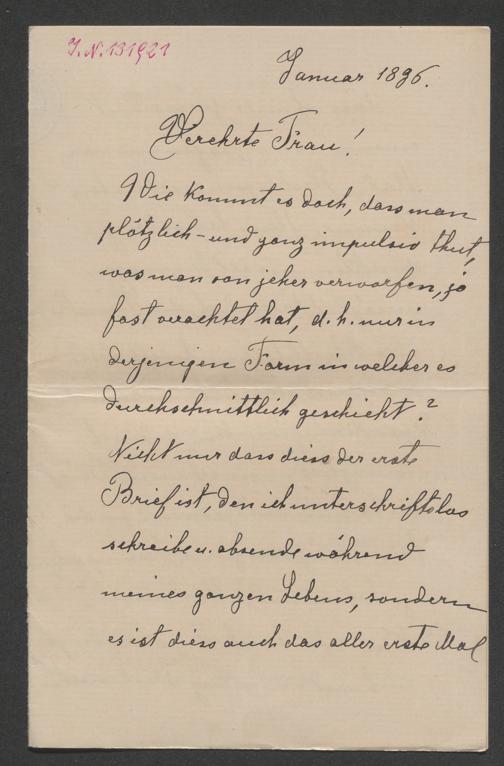 J.N. 131921
Januar 1896.
Verehrte Frau!
Wie kommt es doch, dass man
plötzlich - und ganz impulsiv thut,
was man von jeher verworfen, ja
fast verachtet hat, d. h. nur in
derjenigen Form in welcher es
durchschnittlich geschieht?
Nicht nur dass diess der erste
Brief ist, den ich unterschriftslos
schreibe u. absende während
meines ganzen Lebens, sondern
es ist diess auch das aller erste Mal